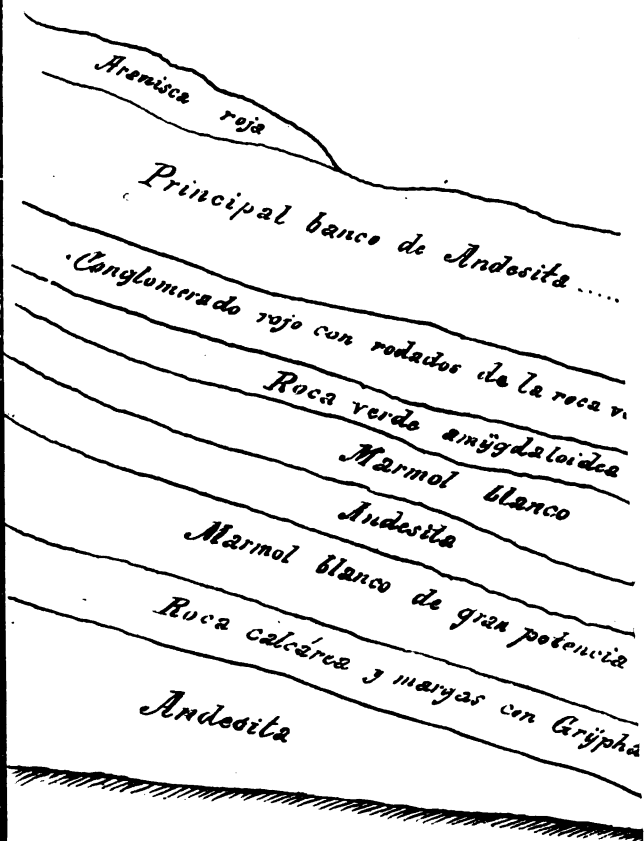 Arenisca roja
Principal banco de Andesita .....
Conglomerado rojo con rodados de la roca v
Roca verde amÿgdaloidea
Marmol blanco
Andesita
Marmol blanco de gran potencia
Roca calcárea y margas con Grÿpha
Andesita